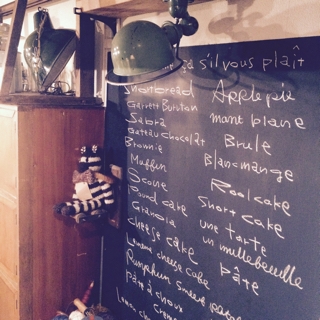 ça s'il vous plaît
Shortbread
Garrett Burston
Sabra
gateau chocolat
Brownie
Muffin
Scone
Pound cake
Granola
cheese cake
cheese cake
Pumpkin
pâte à choux
Apple pie
mant blane
Brule
Blancmange
Roolcake
Short cake
une tarte
un millebeuille
pâte